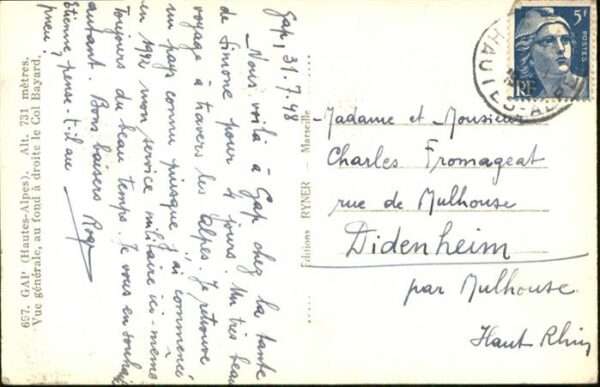 Gap, 31.7.48
Nous voilà à Gap chez la tante
de Simone pour 4 jours. Un très beau
voyage à travers les Alpes. Je retrouve
un pays connu puisque j'ai commencé
en 1942 mon service militaire ici-même
Toujours du beau temps. Je vous en souhaite
autant. Bons baisers Roger
Etienne pense-t-il au
pneu ?
657. GAP (Hautes-Alpes). Alt. 731 mètres.
Vue générale, au fond à droite le Col Bayard.
Editions RYNER - Marseille
5F
POSTES
RF
HAUTES-A
Madame et Monsieur
Charles Fromageat
rue de Mulhouse
Didenheim
par Mulhouse
Haut Rhin